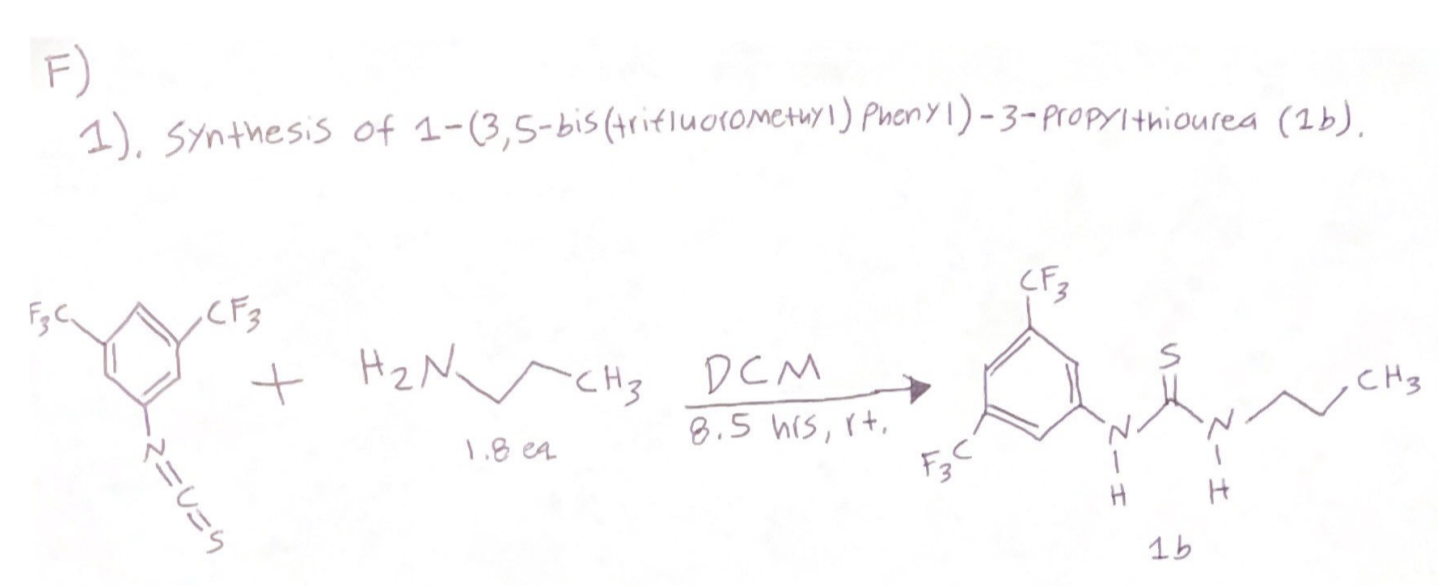 F)
1). Synthesis of 1-(3,5-bis(trifluoromethyl)Phenyl)-3-Propylthiourea (1b).
F3C
CF3
N=C=S
+
H2N
CH3
1.8 eq
DCM
8.5 hrs, rt.
CF3
F3C
N
H
S
N
H
CH3
1b